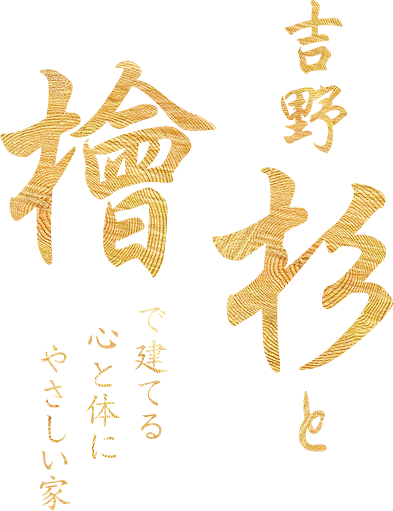 吉野杉と
檜
で建てる
心と体に
やさしい家